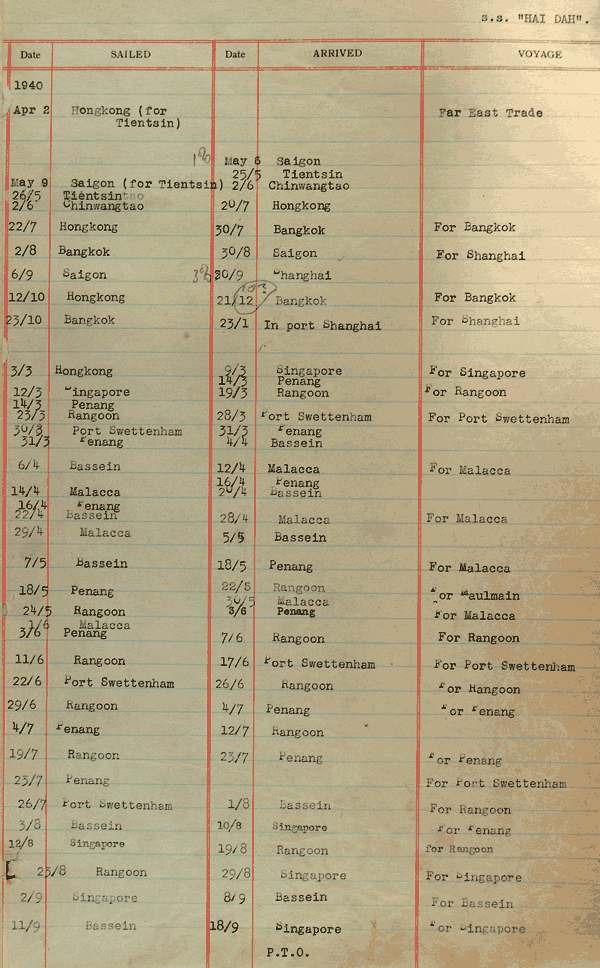 S.S. "HAI DAH".
Date SAILED Date ARRIVED VOYAGE
1940
Apr 2 Hongkong (for Far East Trade
Tientsin)
May 6 Saigon
25/5 Tientsin
May 9 Saigon (for Tientsin) 2/6 Chinwangtao
26/5 Tientsin
2/6 Chinwangtao 20/7 Hongkong
22/7 Hongkong 30/7 Bangkok For Bangkok
2/8 Bangkok 30/8 Saigon For Shanghai
6/9 Saigon 30/9 Shanghai
12/10 Hongkong 21/12 Bangkok For Bangkok
23/10 Bangkok 23/1 In port Shanghai For Shanghai
3/3 Hongkong 9/3 Singapore For Singapore
14/3 Penang
12/3 Singapore 19/3 Rangoon For Rangoon
14/3 Penang
23/3 Rangoon 28/3 Port Swettenham For Port Swettenham
30/3 Port Swettenham 31/3 Penang
31/3 Penang 4/4 Bassein
6/4 Bassein 12/4 Malacca For Malacca
16/4 Penang
14/4 Malacca 20/4 Bassein
16/4 Penang
22/4 Bassein 28/4 Malacca For Malacca
29/4 Malacca 5/5 Bassein
7/5 Bassein 18/5 Penang For Malacca
18/5 Penang 22/5 Rangoon For Maulmain
30/5 Malacca
24/5 Rangoon 3/6 Penang For Malacca
1/6 Malacca
3/6 Penang 7/6 Rangoon For Rangoon
11/6 Rangoon 17/6 Port Swettenham For Port Swettenham
22/6 Port Swettenham 26/6 Rangoon For Rangoon
29/6 Rangoon 4/7 Penang For Penang
4/7 Penang 12/7 Rangoon
19/7 Rangoon 23/7 Penang For Penang
23/7 Penang For Port Swettenham
26/7 Port Swettenham 1/8 Bassein For Rangoon
3/8 Bassein 10/8 Singapore For Penang
12/8 Singapore 19/8 Rangoon for Rangoon
23/8 Rangoon 29/8 Singapore For Singapore
2/9 Singapore 8/9 Bassein For Bassein
11/9 Bassein 18/9 Singapore For Singapore
P.T.O.